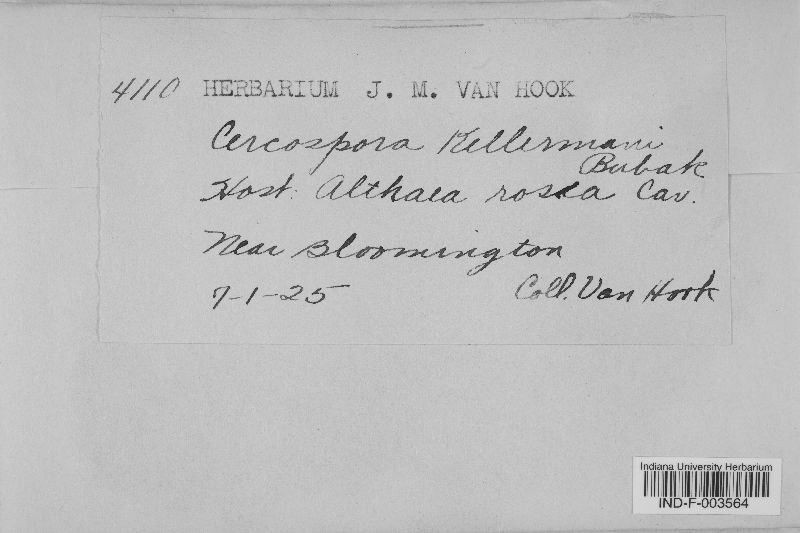 4110 HERBARIUM J. M. VAN HOOK
Cercospora Kellermani
Bubak
Host: Althaea rosea Cav.
Near Bloomington
7-1-25 Coll. Van Hook
Indiana University Herbarium
IND-F-003564